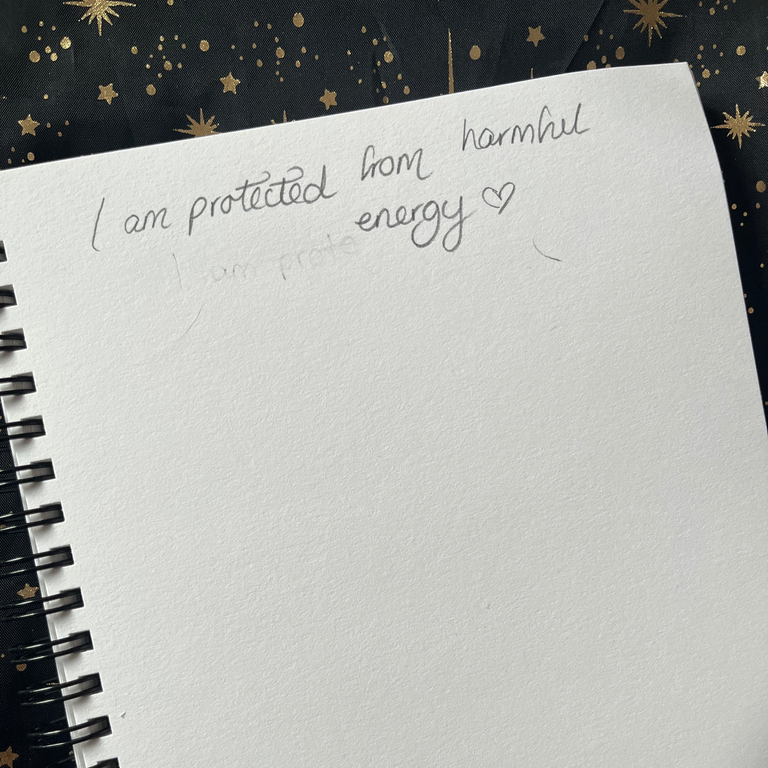 I am protected from harmful
energy ♡
I am prote